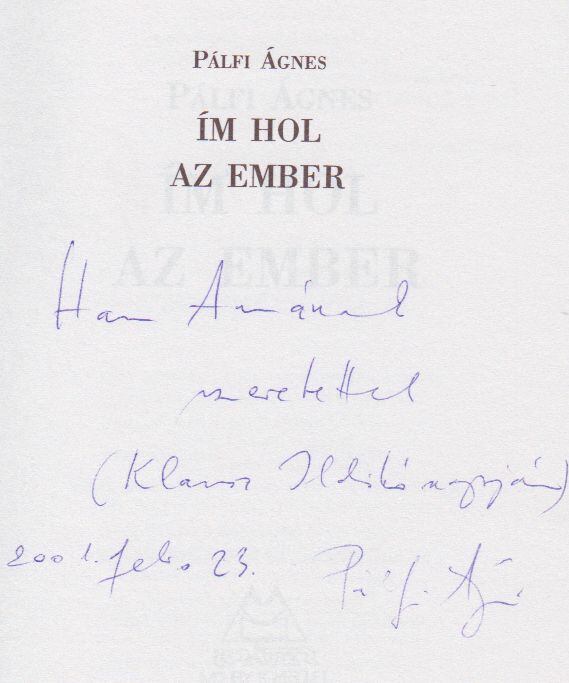 PÁLFI ÁGNES
ÍM HOL
AZ EMBER
Ham Annának
szeretettel
(Klausz Ildikó
2001. feb. 23. Pálfi Ági